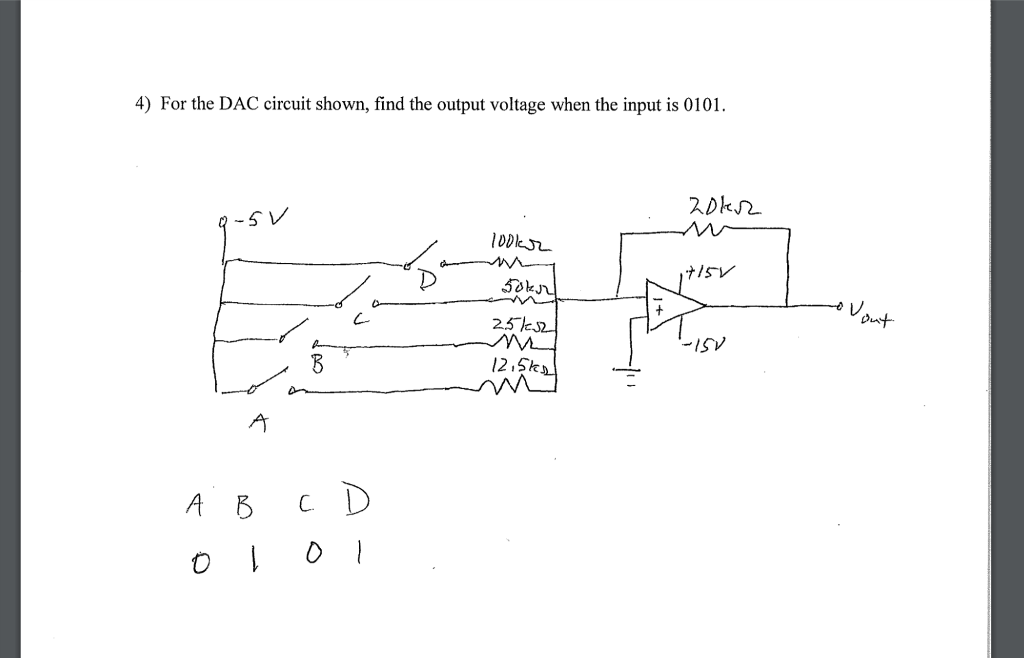 4) For the DAC circuit shown, find the output voltage when the input is 0101.
-5V
20kΩ
100kΩ
D
+15V
50kΩ
C
Vout
25kΩ
B
-15V
12.5kΩ
A
A B C D
0 1 0 1